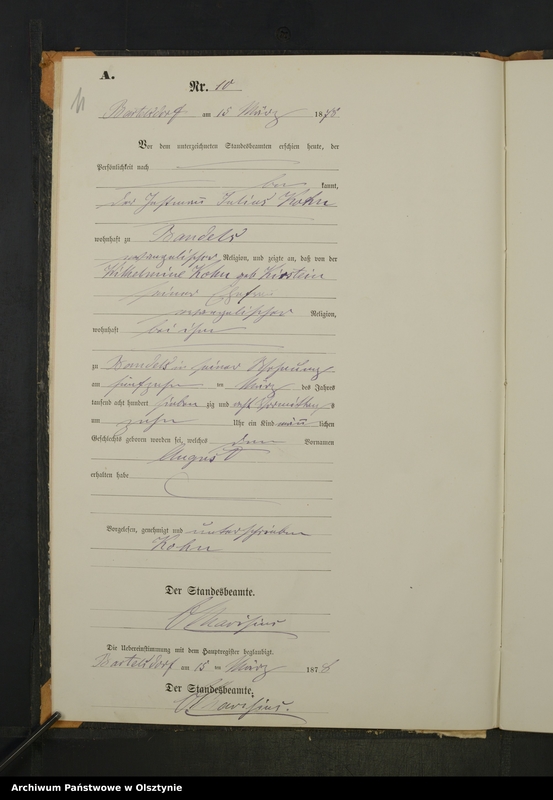 A.
Nr. 10
11
Bartelsdorf am 15 März 1878
Vor dem unterzeichneten Standesbeamten erschien heute, der
Persönlichkeit nach
be kannt,
der Instmann Julius Kohn
wohnhaft zu Bandels
evangelischer Religion, und zeigte an, daß von der
Wilhelmine Kohn geb Kirstein
seiner Ehefrau
evangelischer Religion,
wohnhaft bei ihm
zu Bandels in seiner Wohnung
am fünfzehn ten März des Jahres
tausend acht hundert sieben zig und acht Vormittag s
um zehn Uhr ein Kind männ lichen
Geschlechts geboren worden sei, welches den Vornamen
August
erhalten habe
Vorgelesen, genehmigt und unterschrieben
Kohn
Der Standesbeamte.
Die Uebereinstimmung mit dem Hauptregister beglaubigt.
Bartelsdorf am 15 ten März 1878
Der Standesbeamte.
Archiwum Państwowe w Olsztynie